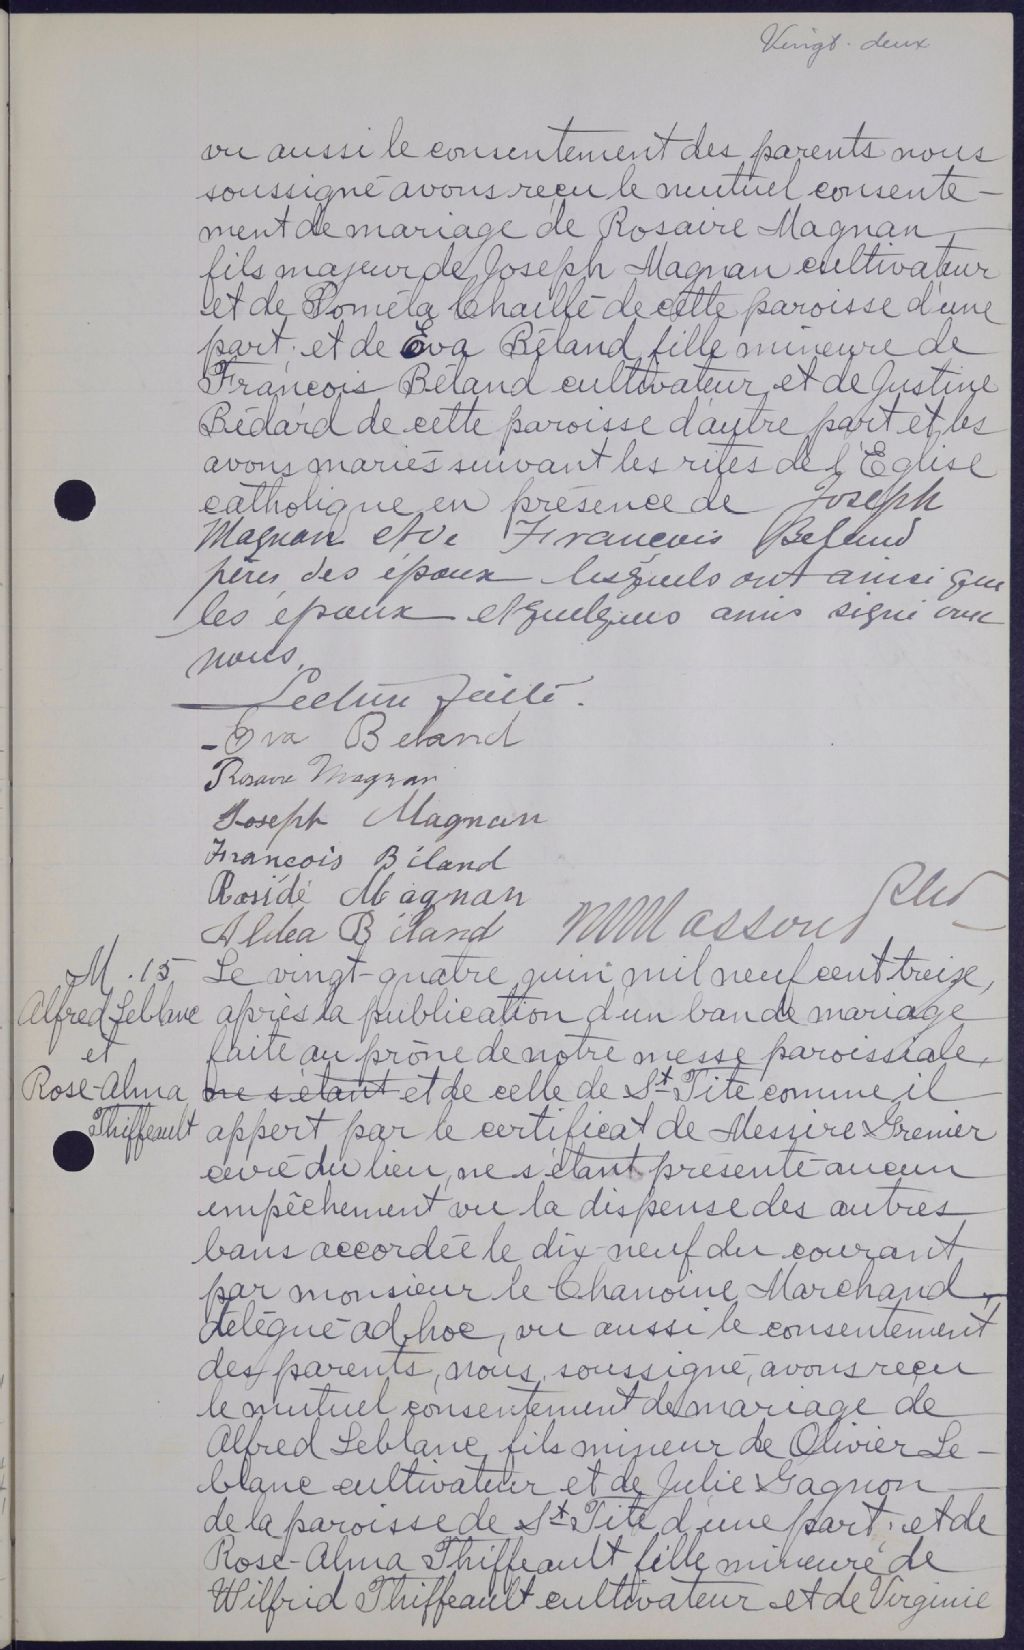 Vingt-deux
vu aussi le consentement des parents nous
soussigné avons reçu le mutuel consente-
ment de mariage de Rosaire Magnan
fils majeur de Joseph Magnan cultivateur
et de Poméla Chaillé de cette paroisse d'une
part; et de Eva Béland fille mineure de
François Béland cultivateur et de Justine
Bédard de cette paroisse d'autre part et les
avons mariés suivant les rites de l'Eglise
catholique en présence de Joseph
Magnan et de François Beland
pères des époux lesquels ont ainsi que
les époux et quelques amis signé avec
nous.
Lecture faite.
Eva Beland
Rosaire Magnan
Joseph Magnan
François Béland
Rosidé Magnan
Aldea Béland Masson Ptre
M. 15
Alfred Leblanc
et
Rose-Alma
Thiffeault
Le vingt-quatre juin mil neuf cent treize,
après la publication d'un ban de mariage
faite au prône de notre messe paroissiale,
ne s'étant et de celle de St Tite comme il
appert par le certificat de Messire Grenier
curé du lieu, ne s'étant présenté aucun
empêchement vu la dispense des autres
bans accordée le dix-neuf du courant
par monsieur le Chanoine Marchand,
délégué ad hoc, vu aussi le consentement
des parents, nous, soussigné, avons reçu
le mutuel consentement de mariage de
Alfred Leblanc fils mineur de Olivier Le-
blanc cultivateur et de Julie Gagnon
de la paroisse de St Tite d'une part; et de
Rose-Alma Thiffeault fille mineure de
Wilfrid Thiffeault cultivateur et de Virginie